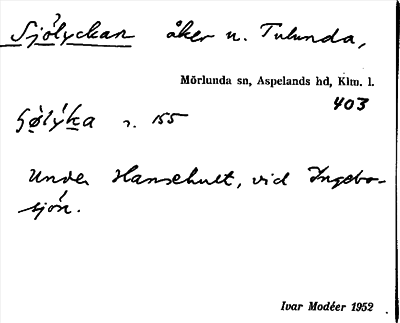 Sjölyckan åker u. Tulunda,
Mörlunda sn, Aspelands hd, Klm. l.
403
s. 155
Under Hansehult, vid Ingebo-
sjön.
Ivar Modéer 1952